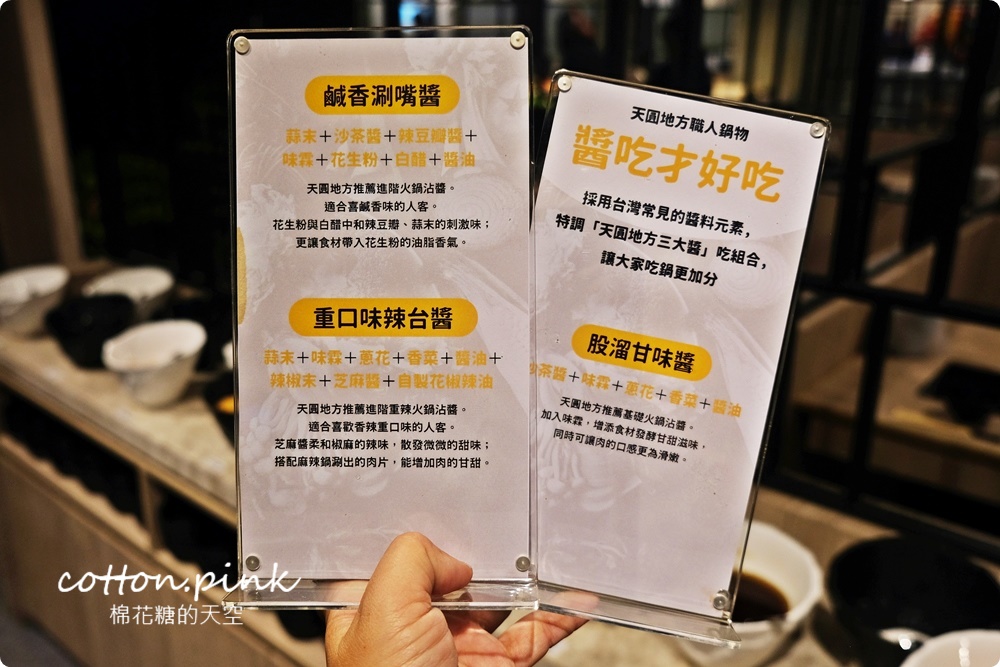 鹹香涮嘴醬
蒜末＋沙茶醬＋辣豆瓣醬＋
味霖＋花生粉＋白醋＋醬油
天圓地方推薦進階火鍋沾醬。
適合喜鹹香味的人客。
花生粉與白醋中和辣豆瓣、蒜末的刺激味；
更讓食材帶入花生粉的油脂香氣。
重口味辣台醬
蒜末＋味霖＋蔥花＋香菜＋醬油＋
辣椒末＋芝麻醬＋自製花椒辣油
天圓地方推薦進階重辣火鍋沾醬。
適合喜歡香辣重口味的人客。
芝麻醬柔和椒麻的辣味，散發微微的甜味；
搭配麻辣鍋涮出的肉片，能增加肉的甘甜。
天圓地方職人鍋物
醬吃才好吃
採用台灣常見的醬料元素，
特調「天圓地方三大醬」吃組合，
讓大家吃鍋更加分
股溜甘味醬
沙茶醬＋味霖＋蔥花＋香菜＋醬油
天圓地方推薦基礎火鍋沾醬。
加入味霖，增添食材發酵甘甜滋味，
同時可讓肉的口感更為滑嫩。
cotton.pink
棉花糖的天空